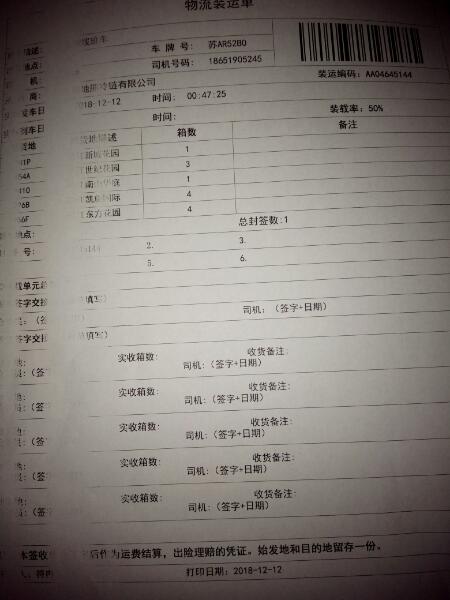 物流装运单
描述: 车 车 牌 号: 苏AR52B0
地点: 司机号码: 18651905245
机 冷链有限公司 装运编码: AA04645144
商: 18-12-12 时间: 00:47:25
发车日 时间: 装载率: 50%
货地 描述 箱数 备注
01P 新城花园 1
54A 世纪花园 3
410 南 华庭 1
76B 凯 国际 4
66F 东方花园 4
地点: 总封签数:1
号: 5144 2. 3.
5. 6.
载单元
签字交接 填写)
: (签 司机: (签字+日期)
签字交接 填写)
实收箱数: 收货备注:
: (签 司机: (签字+日期)
实收箱数: 收货备注:
: (签 司机: (签字+日期)
实收箱数: 收货备注:
: (签 司机: (签字+日期)
实收箱数: 收货备注:
: (签 司机: (签字+日期)
实收箱数: 收货备注:
: (签 司机: (签字+日期)
本签收 后作为运费结算, 出险理赔的凭证。始发地和目的地留存一份。
打印日期: 2018-12-12